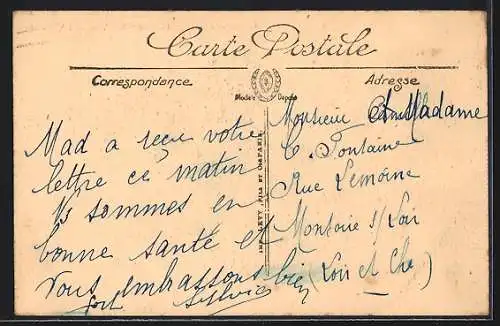 Carte Postale
Correspondance
Adresse
Modèle Déposé
IMP. LÉVY, FILS ET Cie, PARIS
Mad a reçu votre
lettre ce matin
Ns sommes en
bonne santé et
vous embrassons bien
fort Sylvie
Monsieur et Madame
C. Fontaine
Rue Lemoine
Montoire s/ Loir
(Loir et Cher)